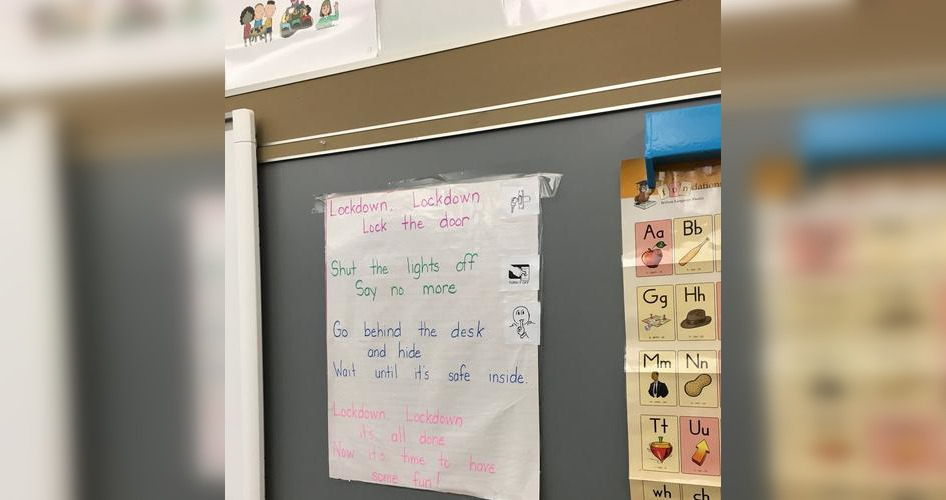 Lockdown, Lockdown
Lock the door
Shut the lights off
Say no more
Go behind the desk
and hide
Wait until it's safe inside.
Lockdown, Lockdown
it's all done
Now it's time to have
some fun!
Aa Bb
Gg Hh
Mm Nn
Tt Uu
wh ch